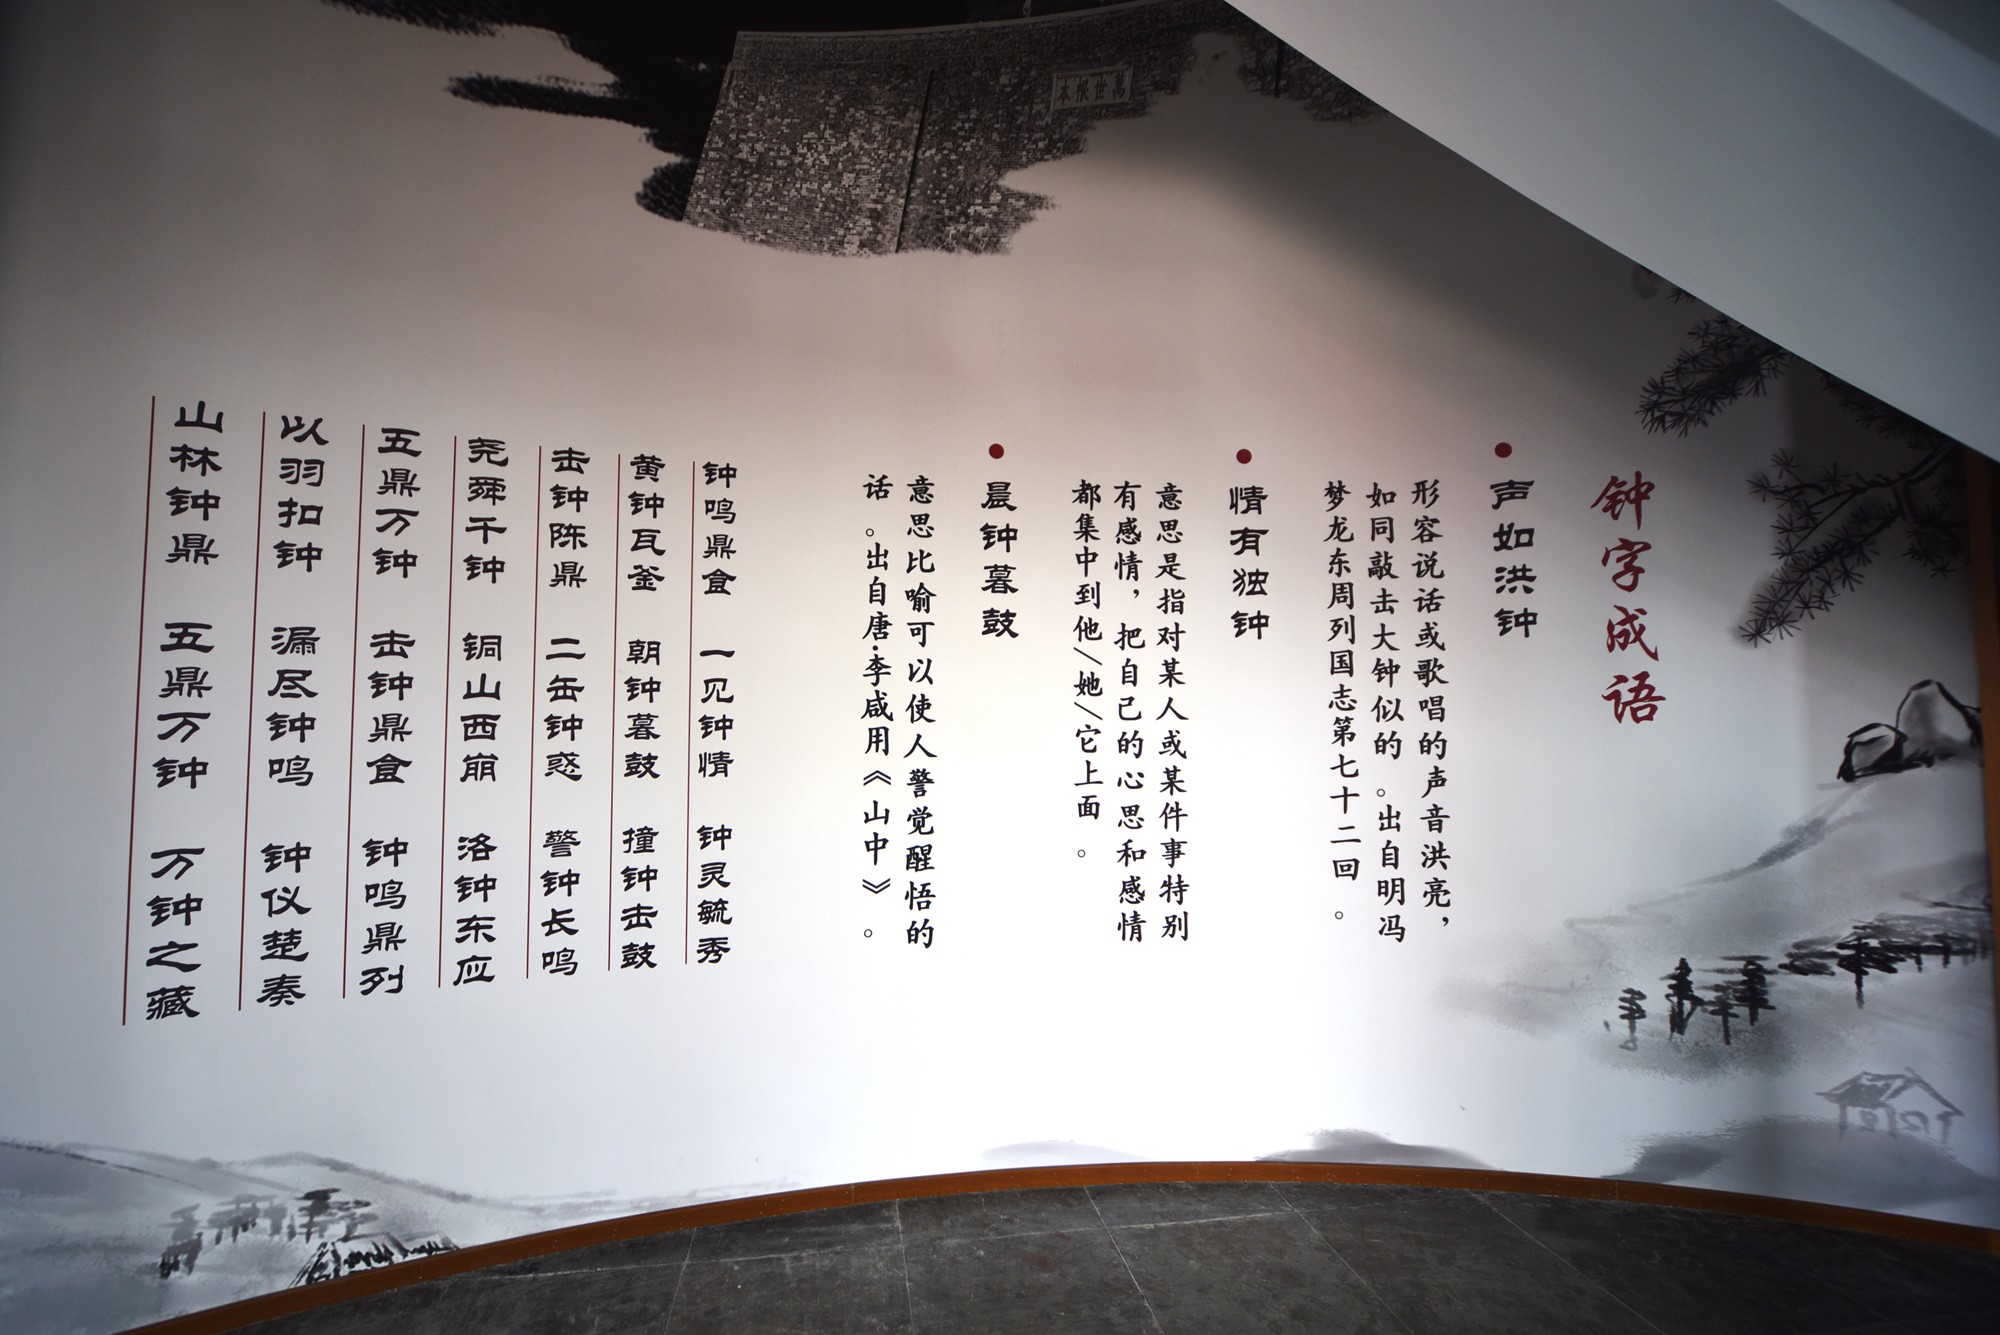 本根世萬
钟字成语
声如洪钟
形容说话或歌唱的声音洪亮，
如同敲击大钟似的。出自明冯
梦龙东周列国志第七十二回。
情有独钟
意思是指对某人或某件事特别
有感情，把自己的心思和感情
都集中到他/她/它上面。
晨钟暮鼓
意思比喻可以使人警觉醒悟的
话。出自唐·李咸用《山中》。
钟鸣鼎食 一见钟情 钟灵毓秀
黄钟瓦釜 朝钟暮鼓 撞钟击鼓
击钟陈鼎 二缶钟惑 警钟长鸣
尧舜千钟 铜山西崩 洛钟东应
五鼎万钟 击钟鼎食 钟鸣鼎列
以羽扣钟 漏尽钟鸣 钟仪楚奏
山林钟鼎 五鼎万钟 万钟之藏